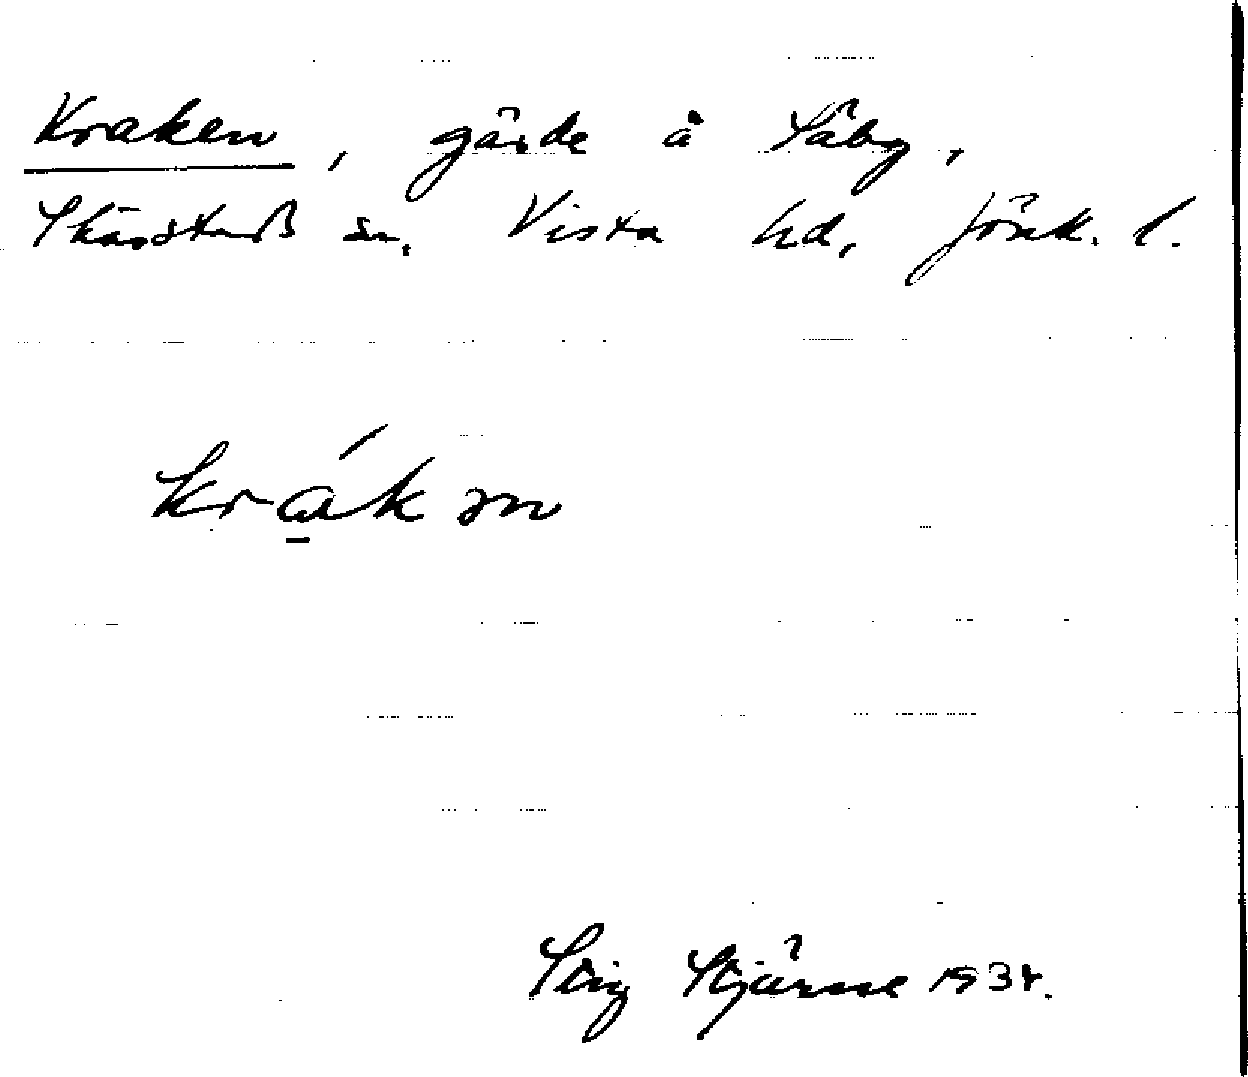 Kraken, gärde å Säby,
Skärstads sn. Vista hd, Jönk. l.
kra̱´kən
Stig Stjärne 1934.